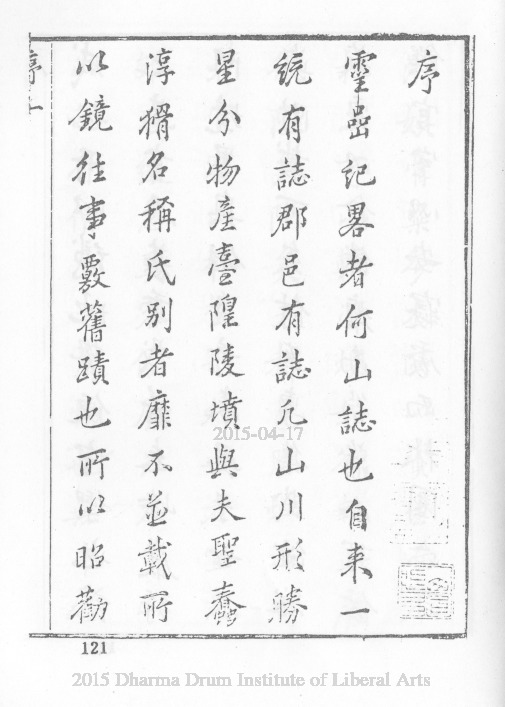 序
靈嵒記畧者何山誌也自来一
統有誌郡邑有誌凡山川形勝
星分物產臺隍陵墳與夫聖蠢
淳猾名稱氏別者靡不並載所
以鏡往事覈舊蹟也所以昭勸
序一
121
2015-04-17
2015 Dharma Drum Institute of Liberal Arts